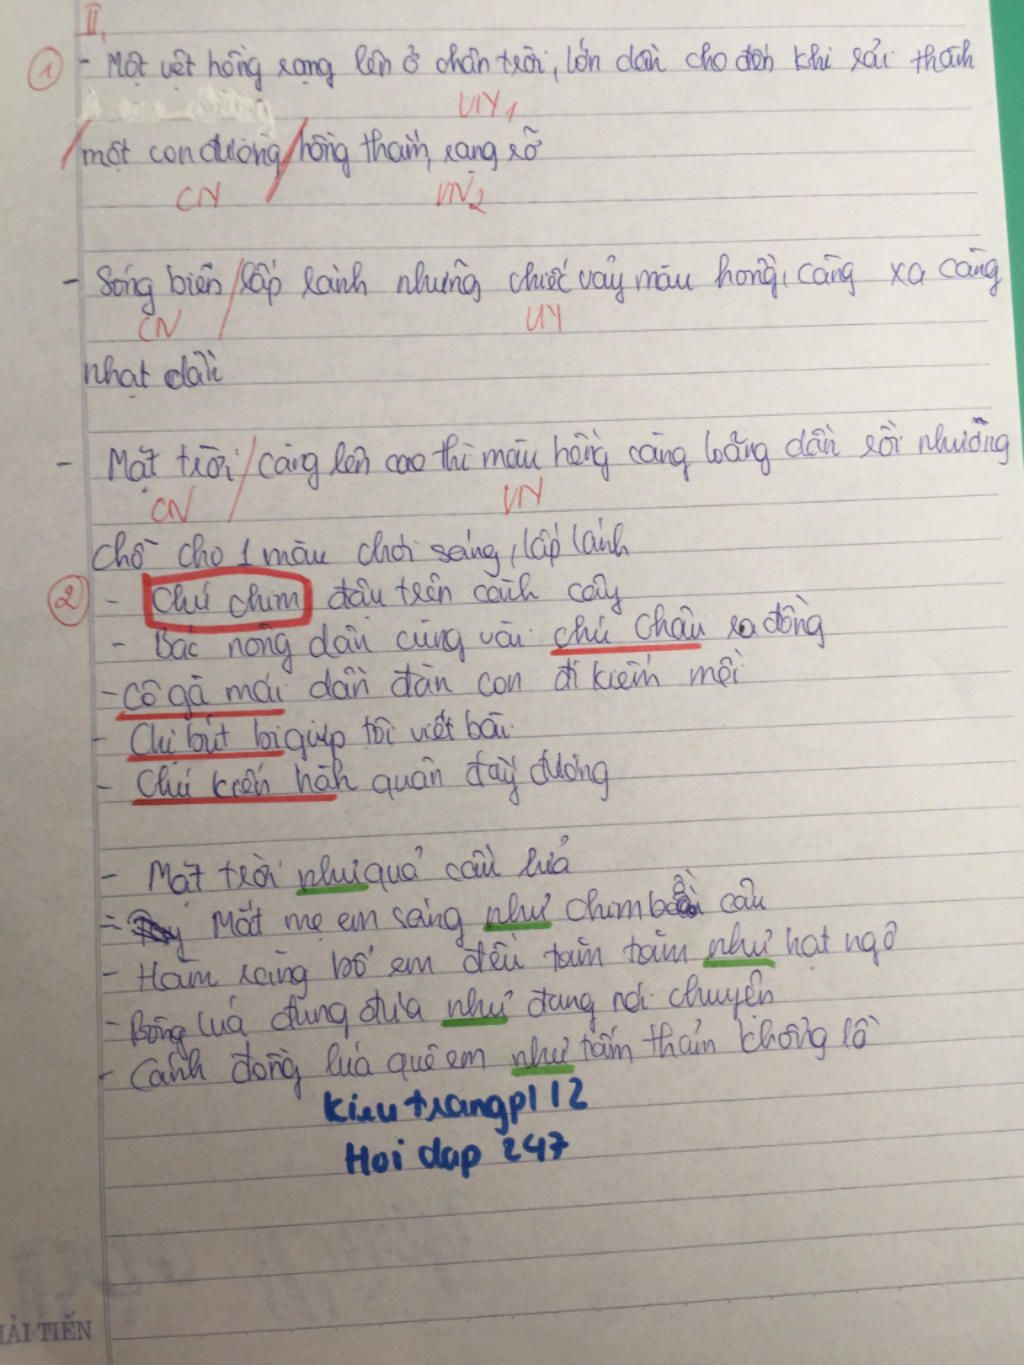 II,
1 - Một vệt hồng rạng lên ở chân trời, lớn dần cho đến khi rải thành
VN1
một con đường hồng thắm, rạng rỡ
CN VN2
- Sóng biển lấp lánh những chiếc vảy màu hồng, càng xa càng
CN VN
nhạt dần
- Mặt trời càng lên cao thì màu hồng càng loãng dần rồi nhường
CN VN
chỗ cho 1 màu chói sáng, lấp lánh
2 - Chú chim đậu trên cành cây
- Bác nông dân cùng với chú Chấu ra đồng
- Cô gà mái dẫn đàn con đi kiếm mồi
- Chị bút bi giúp tôi viết bài
- Chú kiến hành quân đầy đường
- Mặt trời như quả cầu lửa
- Mắt mẹ em sáng như chim bồ câu
- Hàm răng bố em đều tăm tắm như hạt ngô
- Bông lúa đung đưa như đang nói chuyện
- Cánh đồng lúa quê em như tấm thảm khổng lồ
Kieutrangpl 12
Hoi dap 247
ẢI TIẾN